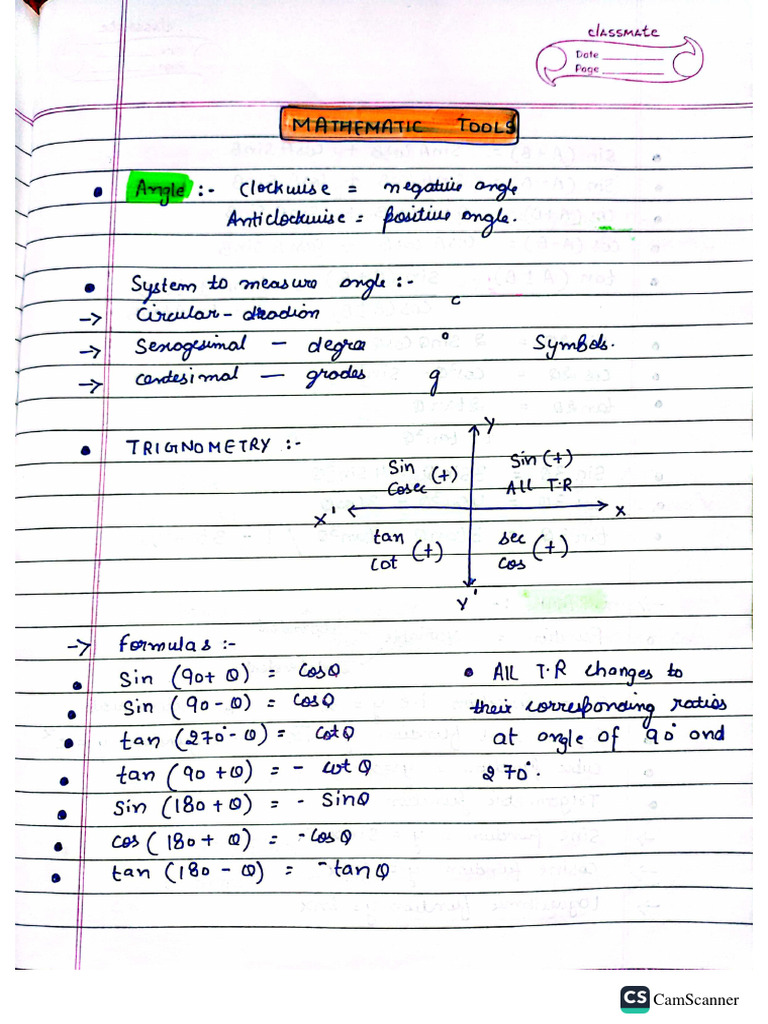 classmate
Date
Page
MATHEMATIC TOOLS
• Angle :- Clockwise = negative angle
Anticlockwise = positive angle.
• System to measure angle :-
→ Circular - radian c
→ Sexagesimal — degree ° Symbols.
→ centesimal — grades g
• TRIGNOMETRY :-
Y
Sin
Cosec (+)
Sin (+)
All T.R
X' X
tan
cot (+)
sec
cos (+)
Y'
→ formulas :-
• Sin (90+ θ) = Cosθ
• Sin (90 - θ) = Cosθ
• tan (270° - θ) = Cotθ
• tan (90 + θ) = - cotθ
• Sin (180 + θ) = - Sinθ
• cos (180 + θ) = -cosθ
• tan (180 - θ) = -tanθ
• All T.R changes to
their corresponding ratios
at angle of 90° and
270°.
CS CamScanner